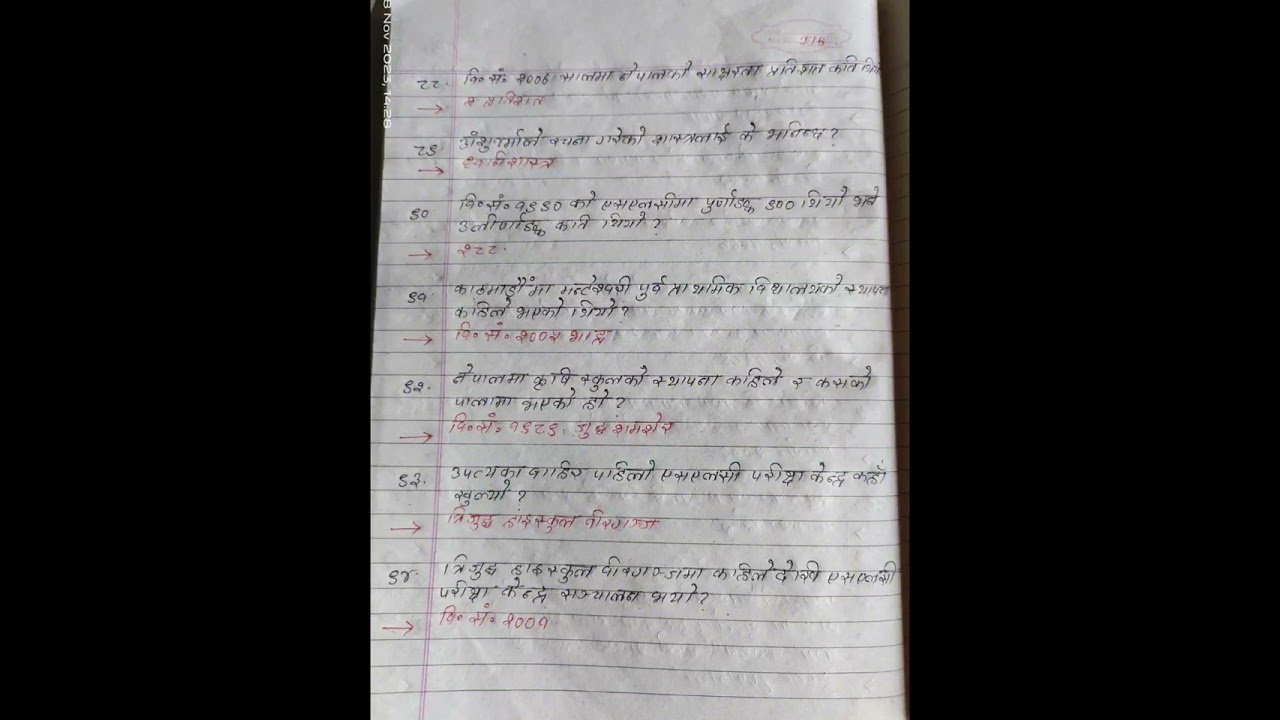 8 Nov 2023, 14:28
८८. वि॰सं॰ २००८ सालमा नेपालको साक्षरता प्रतिशत कति थियो
→ २ प्रतिशत
८९ अंशुवर्माले रचना गरेको शास्त्रलाई के भनिन्छ?
→ ध्वनिशास्त्र
९० वि॰सं॰ १९९० को एसएलसीमा पुर्णाङ्क ९०० थियो भने
उत्तीर्णाङ्क कति थियो?
→ २८८.
९१ काठमाडौंमा मन्टेश्वरी पुर्व प्राथमिक विद्यालयको स्थापना
कहिले भएको थियो?
→ वि॰सं॰ २००५ भाद्र
९२. नेपालमा कृषि स्कुलको स्थापना कहिले र कसको
पालामा भएको हो?
→ वि॰सं॰ १९८९, जुद्ध शमशेर
९३. उपत्यका बाहिर पहिलो एसएलसी परीक्षा केन्द्र कहाँ
खुल्यो?
→ त्रिजुद्ध हाइस्कुल वीरगञ्ज
९४. त्रिजुद्ध हाइस्कुल वीरगञ्जमा कहिले देखि एसएलसी
परीक्षा केन्द्र सञ्चालन भयो?
→ वि॰सं॰ २००१